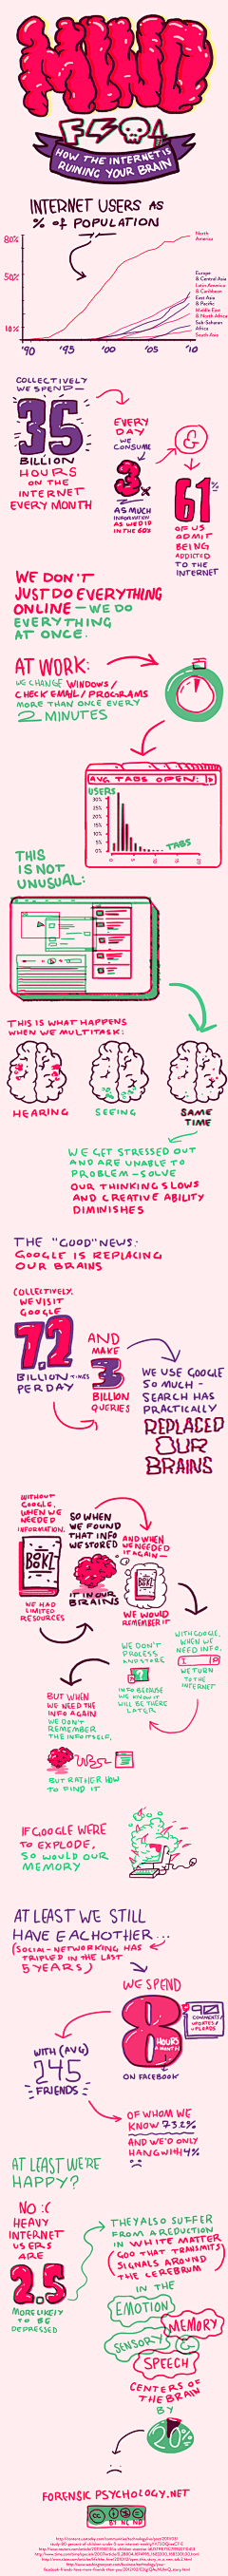 MIND
F
HOW THE INTERNET IS
RUINING YOUR BRAIN
INTERNET USERS AS
% of POPULATION
North
America
80%
50%
10%
Europe
& Central Asia
Latin America
& Caribbean
East Asia
& Pacific
Middle East
& North Africa
Sub-Saharan
Africa
South Asia
'90 '95 '00 '05 '10
COLLECTIVELY
WE SPEND—
35
BILLION
HOURS
ON THE
INTERNET
EVERY MONTH
EVERY
DAY
WE
CONSUME
3x
AS MUCH
INFORMATION
AS WE DID
IN THE 60s
&
61%
OF US
ADMIT
BEING
ADDICTED
TO THE
INTERNET
WE DON'T
JUST DO EVERYTHING
ONLINE — WE DO
EVERYTHING
AT ONCE.
AT WORK:
WE CHANGE WINDOWS/
CHECK EMAIL/PROGRAMS
MORE THAN ONCE EVERY
2 MINUTES
AVG. TABS OPEN:
USERS
30%
25%
20%
15%
10%
5%
0%
TABS
THIS
IS NOT
UNUSUAL:
THIS IS WHAT HAPPENS
WHEN WE MULTITASK:
HEARING
SEEING
SAME
TIME
WE GET STRESSED OUT
AND ARE UNABLE TO
PROBLEM-SOLVE
OUR THINKING SLOWS
AND CREATIVE ABILITY
DIMINISHES
THE "GOOD" NEWS:
GOOGLE IS REPLACING
OUR BRAINS
COLLECTIVELY,
WE VISIT
GOOGLE
7.2
BILLION TIMES
PER DAY
AND
MAKE
3
BILLION
QUERIES
WE USE GOOGLE
SO MUCH -
SEARCH HAS
PRACTICALLY
REPLACED
OUR
BRAINS
WITHOUT
GOOGLE,
WHEN WE
NEEDED
INFORMATION,
WE HAD
LIMITED
RESOURCES
SO WHEN
WE FOUND
THAT INFO
WE STORED
IT IN OUR
BRAINS
AND WHEN
WE NEEDED
IT AGAIN—
WE WOULD
REMEMBER IT
WITH GOOGLE,
WHEN WE
NEED INFO,
WE TURN
TO THE
INTERNET
WE DON'T
PROCESS
AND STORE
INFO BECAUSE
WE KNOW IT
WILL BE THERE
LATER
BUT WHEN
WE NEED THE
INFO AGAIN
WE DON'T
REMEMBER
THE INFO ITSELF,
BUT RATHER HOW
TO FIND IT
IF GOOGLE WERE
TO EXPLODE,
SO WOULD OUR
MEMORY
AT LEAST WE STILL
HAVE EACHOTHER...
(SOCIAL-NETWORKING HAS
TRIPLED IN THE LAST
5 YEARS)
WE SPEND
8
HOURS
A MONTH
ON FACEBOOK
90
COMMENTS/
UPDATES/
UPLOADS
WITH (AVG)
245
FRIENDS
OF WHOM WE
KNOW 73.2%
AND WE'D ONLY
HANG WITH 4%
AT LEAST WE'RE
HAPPY?
NO :(
HEAVY
INTERNET
USERS
ARE
2.5
MORE LIKELY
TO BE
DEPRESSED
THEY ALSO SUFFER
FROM A REDUCTION
IN WHITE MATTER
(GOO THAT TRANSMITS
SIGNALS AROUND
THE CEREBRUM)
IN THE
EMOTION
MEMORY
SENSORY
SPEECH
CENTERS OF
THE BRAIN
BY
20%
FORENSIC PSYCHOLOGY.NET
CC
BY NC ND